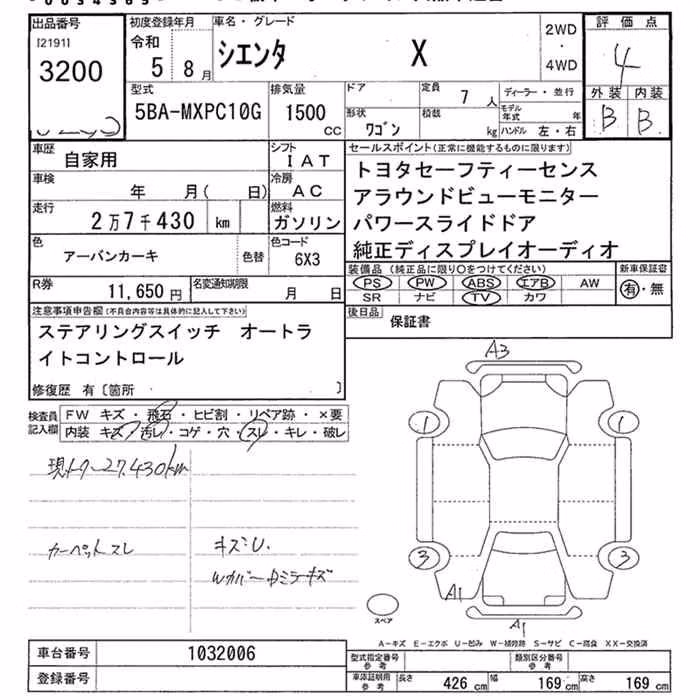 出品番号
[2191]
3200
初度登録年月
令和
5 8月
車名・グレード
シエンタ X
2WD
・
4WD
評価点
4
外装 内装
B B
型式
5BA-MXPC10G
排気量
1500
cc
ドア
定員
7人
ディーラー・並行
形状
ワゴン
積載
kg
モデル年式 年
ハンドル 左・右
車歴
自家用
シフト
IAT
車検
年 月( 日)
冷房
AC
走行
2万7千430 km
燃料
ガソリン
色
アーバンカーキ
色替
色コード
6X3
R券
11,650円
名変通知期限
月 日
セールスポイント(正常に機能するものに限ります)
トヨタセーフティーセンス
アラウンドビューモニター
パワースライドドア
純正ディスプレイオーディオ
装備品(純正品に限り○をつけてください)
新車保証書
PS PW ABS エアB AW
SR ナビ TV カワ
有・無
後日品
保証書
注意事項申告欄(不具合内容等は具体的に記入して下さい)
ステアリングスイッチ オートラ
イトコントロール
修復歴 有〔箇所 〕
検査員
記入欄
FW キズ・飛石・ヒビ割・リペア跡・×要
内装 キズ・汚レ・コゲ・穴・スレ・キレ・破レ
現メーター27,430km
カーペットスレ
キズU.
Wカバー・Dミラーキズ
A3
1
1
3
3
A1
A1
スペア
A−キズ E−エクボ U−凹み W−補修跡 S−サビ C−腐食 XX−交換済
車台番号
1032006
登録番号
型式指定番号
参考
類別区分番号
参考
車庫証明用
参考
長さ 426cm 幅 169cm 高さ 169cm